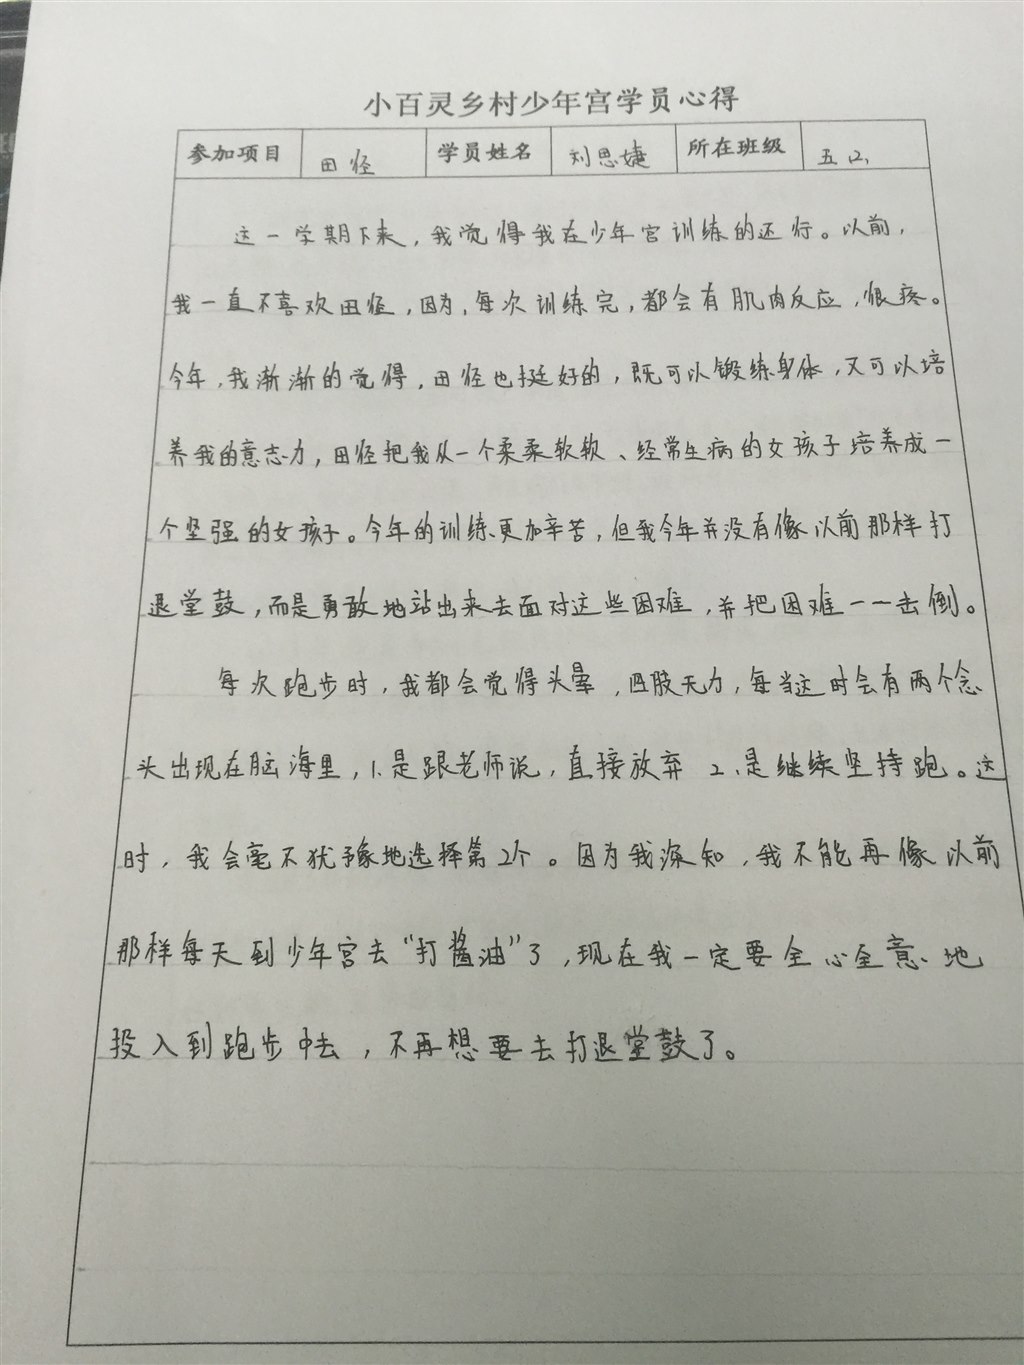 小百灵乡村少年宫学员心得
参加项目 田径 学员姓名 刘思婕 所在班级 五(2)
这一学期下来，我觉得我在少年宫训练的还行。以前，
我一直不喜欢田径，因为，每次训练完，都会有肌肉反应，很疼。
今年，我渐渐的觉得，田径也挺好的，既可以锻练身体，又可以培
养我的意志力，田径把我从一个柔柔软软、经常生病的女孩子培养成一
个坚强的女孩子。今年的训练更加辛苦，但我今年并没有像以前那样打
退堂鼓，而是勇敢地站出来去面对这些困难，并把困难一一击倒。
每次跑步时，我都会觉得头晕，四肢无力，每当这时会有两个念
头出现在脑海里，1、是跟老师说，直接放弃 2、是继续坚持跑。这
时，我会毫不犹予象地选择第2个。因为我深知，我不能再像以前
那样每天到少年宫去“打酱油”了，现在我一定要全心全意地
投入到跑步中去，不再想要去打退堂鼓了。